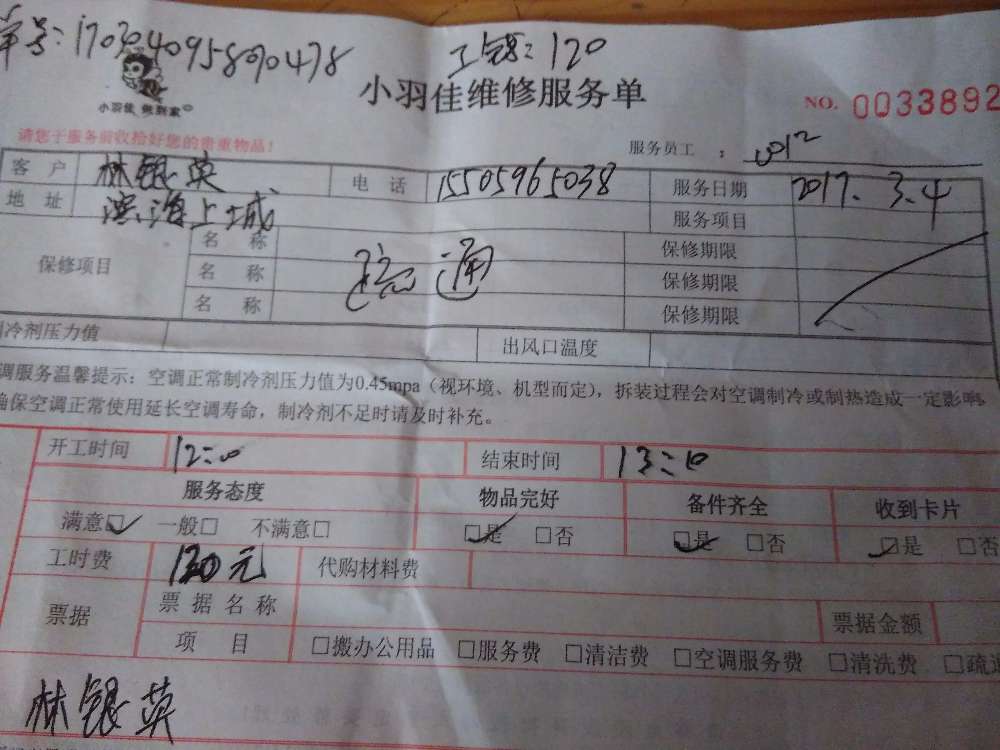 单号:170304095890478 工号:120
小羽佳 做到家
小羽佳维修服务单
NO. 0033892
请您于服务前收拾好您的贵重物品!
服务员工 : 0012
客 户 林银英 电 话 15505965038 服务日期 2017.3.4
地 址 滨海上城 服务项目
保修项目 名 称 疏通 保修期限
名 称 保修期限
名 称 保修期限
冷剂压力值 出风口温度
调服务温馨提示:空调正常制冷剂压力值为0.45mpa(视环境、机型而定),拆装过程会对空调制冷或制热造成一定影响,
确保空调正常使用延长空调寿命,制冷剂不足时请及时补充。
开工时间 12:00 结束时间 13:10
服务态度 物品完好 备件齐全 收到卡片
满意☑ 一般□ 不满意□ ☑是 □否 ☑是 □否 ☑是 □否
工时费 120元 代购材料费
票据 票据名称 票据金额
项 目 □搬办公用品 □服务费 □清洁费 □空调服务费 □清洗费 □疏通
林银英